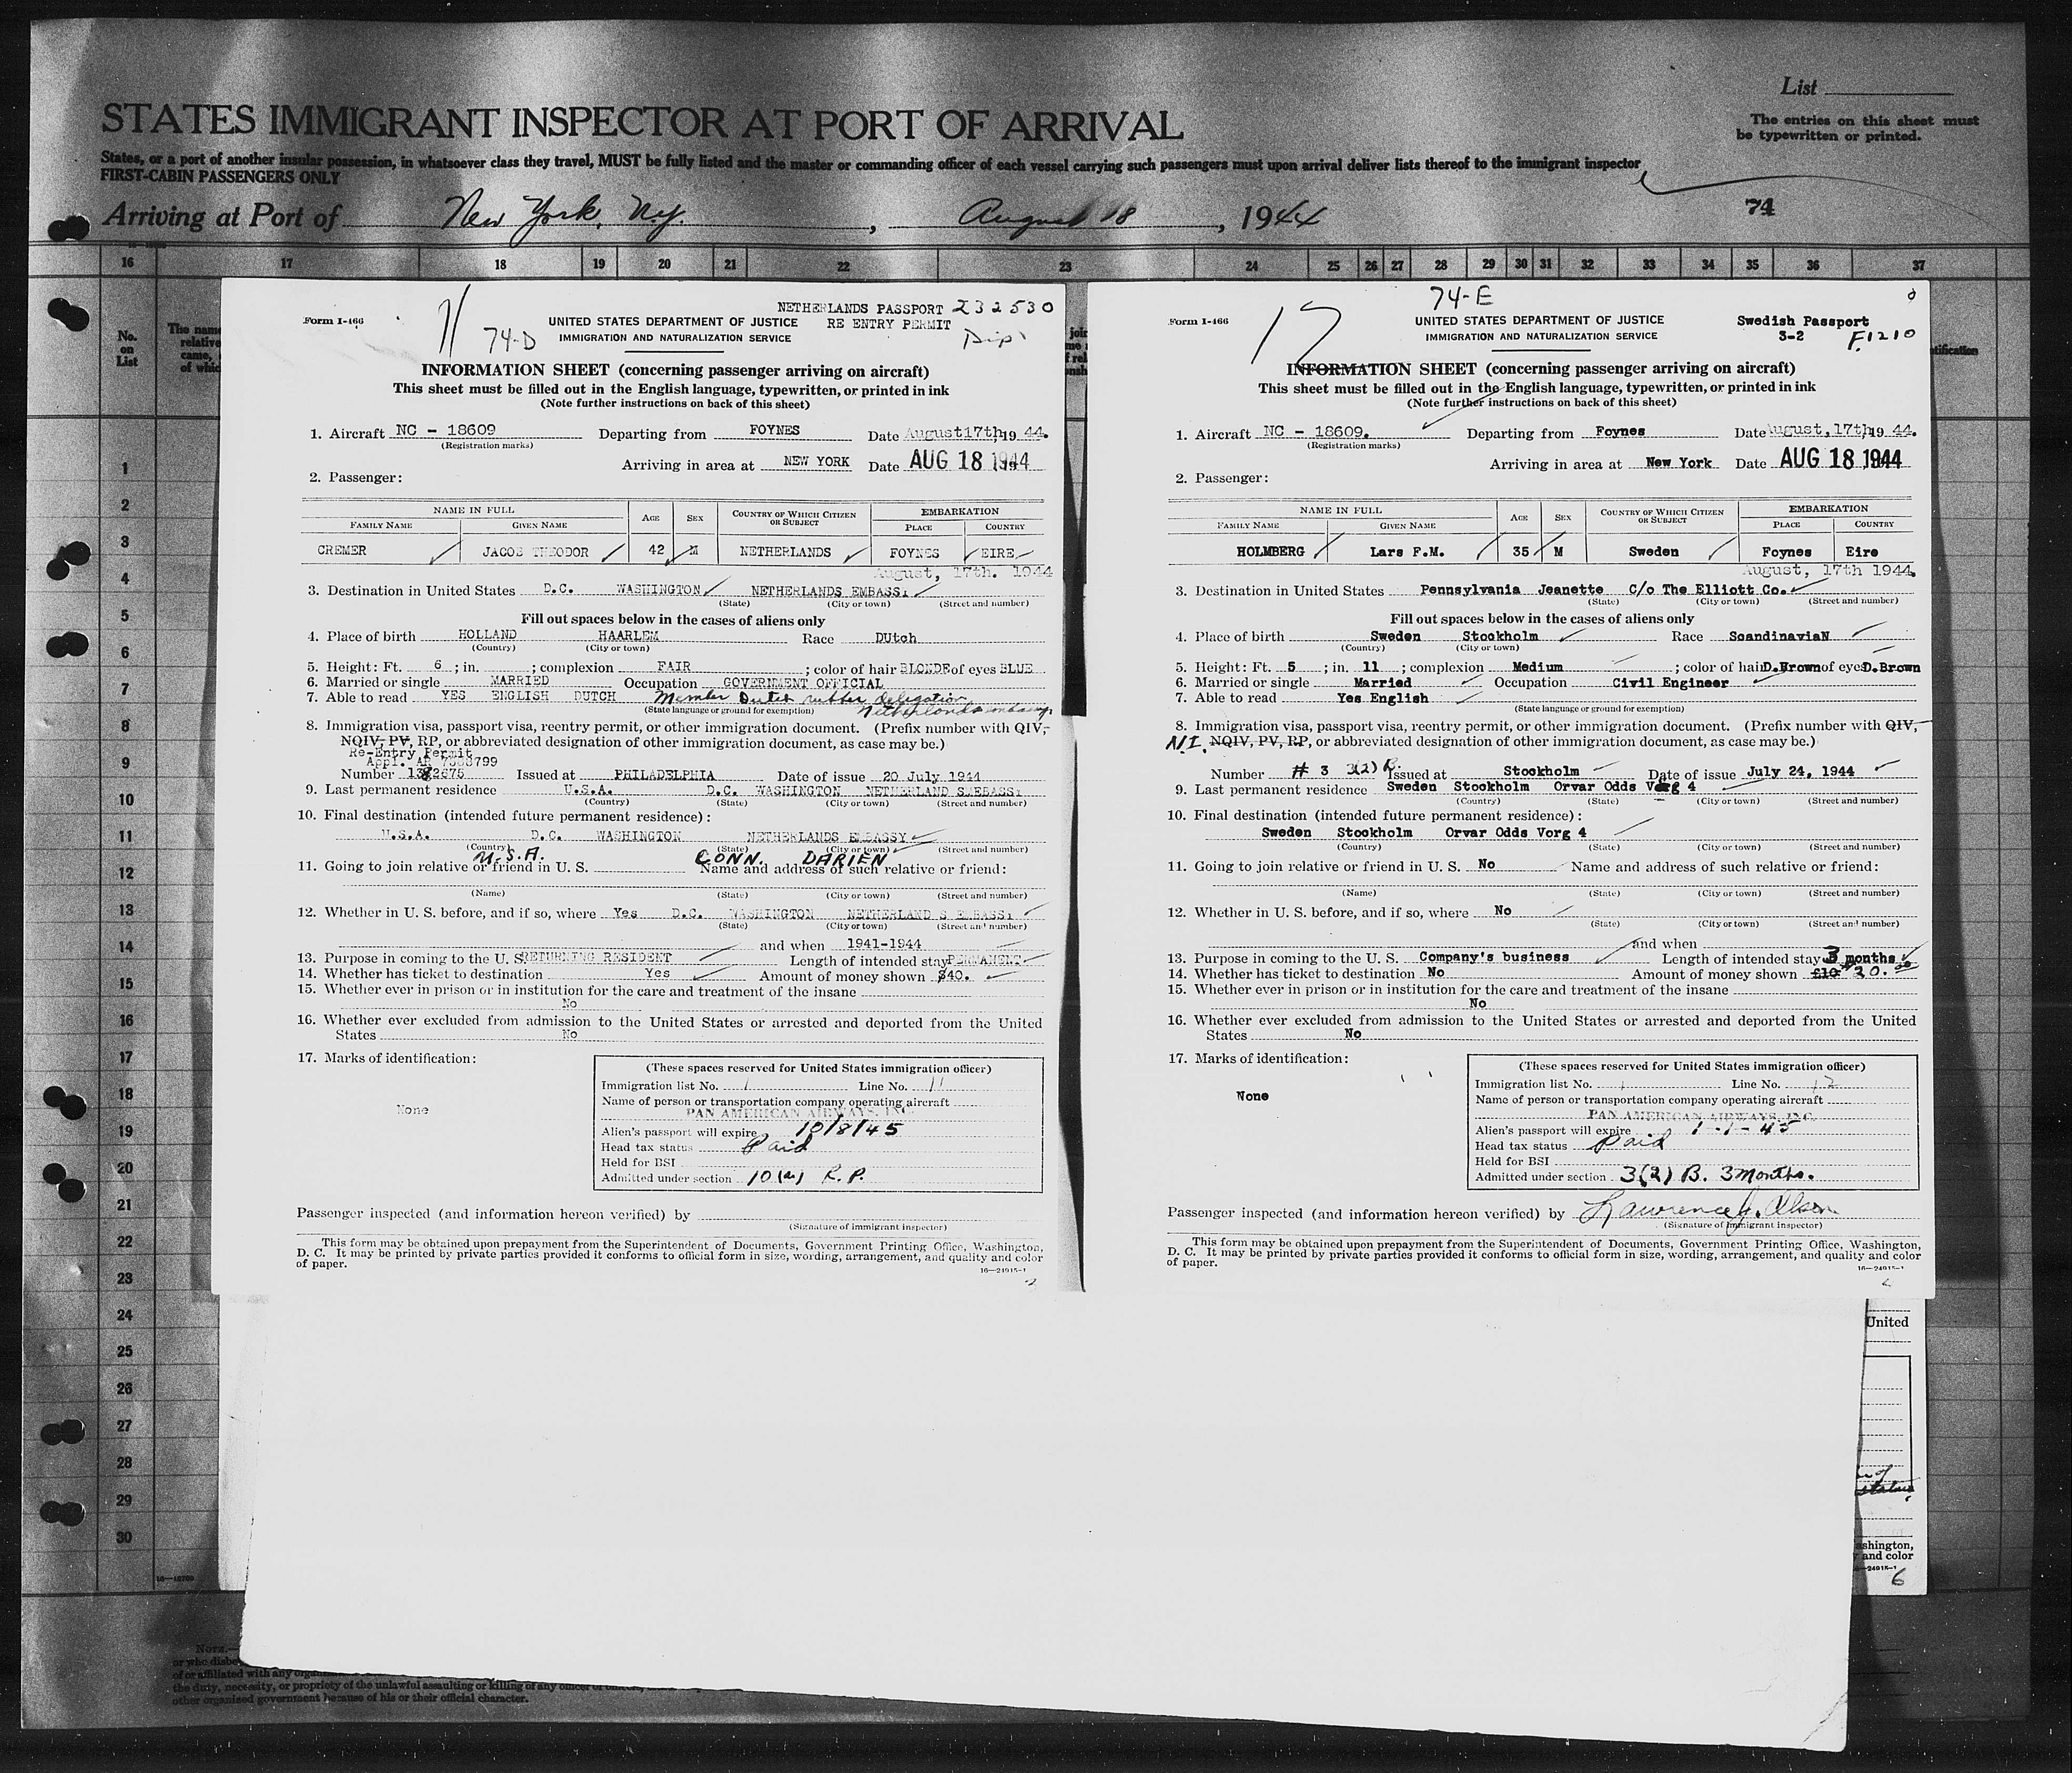 List
STATES IMMIGRANT INSPECTOR AT PORT OF ARRIVAL
The entries on this sheet must
be typewritten or printed.
States, or a port of another insular possession, in whatsoever class they travel, MUST be fully listed and the master or commanding officer of each vessel carrying such passengers must upon arrival deliver lists thereof to the immigrant inspector
FIRST-CABIN PASSENGERS ONLY
Arriving at Port of New York, N.Y., August 18, 1944
74
16 17 18 19 20 21 22 23 24 25 26 27 28 29 30 31 32 33 34 35 36 37
No.
on
List
1
2
3
4
5
6
7
8
9
10
11
12
13
14
15
16
17
18
19
20
21
22
23
24
25
26
27
28
29
30
Form I-466
11
74-D
NETHERLANDS PASSPORT 232530
RE ENTRY PERMIT
Dip
UNITED STATES DEPARTMENT OF JUSTICE
IMMIGRATION AND NATURALIZATION SERVICE
INFORMATION SHEET (concerning passenger arriving on aircraft)
This sheet must be filled out in the English language, typewritten, or printed in ink
(Note further instructions on back of this sheet)
1. Aircraft NC - 18609 Departing from FOYNES Date August 17th, 1944.
(Registration marks)
Arriving in area at NEW YORK Date AUG 18 1944
2. Passenger:
NAME IN FULL AGE SEX COUNTRY OF WHICH CITIZEN OR SUBJECT EMBARKATION
FAMILY NAME GIVEN NAME PLACE COUNTRY
CREMER JACOB THEODOR 42 M NETHERLANDS FOYNES EIRE
August, 17th. 1944
3. Destination in United States D.C. WASHINGTON NETHERLANDS EMBASSY
(State) (City or town) (Street and number)
Fill out spaces below in the cases of aliens only
4. Place of birth HOLLAND HAARLEM Race DUtch
(Country) (City or town)
5. Height: Ft. 6; in. ; complexion FAIR; color of hair BLONDE of eyes BLUE
6. Married or single MARRIED Occupation GOVERNMENT OFFICIAL
7. Able to read YES ENGLISH DUTCH Member Dutch rubber delegation
(State language or ground for exemption) Netherlands embassy
8. Immigration visa, passport visa, reentry permit, or other immigration document. (Prefix number with QIV,
NQIV, PV, RP, or abbreviated designation of other immigration document, as case may be.)
Re-Entry Permit
Number Issued at PHILADELPHIA Date of issue 20 July 1944
9. Last permanent residence U.S.A. D.C. WASHINGTON NETHERLAND SMEBASSY
(Country) (State) (City or town) (Street and number)
10. Final destination (intended future permanent residence):
U.S.A. D.C. WASHINGTON NETHERLANDS EMBASSY
(Country) (State) (City or town) (Street and number)
U.S.A. CONN. DARIEN
11. Going to join relative or friend in U. S. Name and address of such relative or friend:
(Name) (State) (City or town) (Street and number)
12. Whether in U. S. before, and if so, where Yes D.C. WASHINGTON NETHERLAND S EMBASSY
(State) (City or town) (Street and number)
and when 1941-1944
13. Purpose in coming to the U. S. RETURNING RESIDENT Length of intended stay PERMANENT
14. Whether has ticket to destination Yes Amount of money shown $40.
15. Whether ever in prison or in institution for the care and treatment of the insane
No
16. Whether ever excluded from admission to the United States or arrested and deported from the United
States No
17. Marks of identification:
None
(These spaces reserved for United States immigration officer)
Immigration list No. 1 Line No. 11
Name of person or transportation company operating aircraft
PAN AMERICAN AIRWAYS, INC.
Alien's passport will expire 10/8/45
Head tax status Paid
Held for BSI
Admitted under section 10(a) R.P.
Passenger inspected (and information hereon verified) by
(Signature of immigrant inspector)
This form may be obtained upon prepayment from the Superintendent of Documents, Government Printing Office, Washington,
D. C. It may be printed by private parties provided it conforms to official form in size, wording, arrangement, and quality and color
of paper.
16—24915-1
Form I-466
12
74-E
Swedish Passport
3-2 F.1210
UNITED STATES DEPARTMENT OF JUSTICE
IMMIGRATION AND NATURALIZATION SERVICE
INFORMATION SHEET (concerning passenger arriving on aircraft)
This sheet must be filled out in the English language, typewritten, or printed in ink
(Note further instructions on back of this sheet)
1. Aircraft NC - 18609. Departing from Foynes Date August, 17th 1944.
(Registration marks)
Arriving in area at New York Date AUG 18 1944
2. Passenger:
NAME IN FULL AGE SEX COUNTRY OF WHICH CITIZEN OR SUBJECT EMBARKATION
FAMILY NAME GIVEN NAME PLACE COUNTRY
HOLMBERG Lars F.M. 35 M Sweden Foynes Eire
August, 17th 1944.
3. Destination in United States Pennsylvania Jeanette C/o The Elliott Co.
(State) (City or town) (Street and number)
Fill out spaces below in the cases of aliens only
4. Place of birth Sweden Stockholm Race ScandinaviaN
(Country) (City or town)
5. Height: Ft. 5; in. 11; complexion Medium; color of hair D.Brown of eyes D.Brown
6. Married or single Married Occupation Civil Engineer
7. Able to read Yes English
(State language or ground for exemption)
8. Immigration visa, passport visa, reentry permit, or other immigration document. (Prefix number with QIV,
N.I. NQIV, PV, RP, or abbreviated designation of other immigration document, as case may be.)
Number # 3 3(2) B. Issued at Stockholm Date of issue July 24, 1944
9. Last permanent residence Sweden Stockholm Orvar Odds Vorg 4
(Country) (State) (City or town) (Street and number)
10. Final destination (intended future permanent residence):
Sweden Stockholm Orvar Odds Vorg 4
(Country) (State) (City or town) (Street and number)
11. Going to join relative or friend in U. S. No Name and address of such relative or friend:
(Name) (State) (City or town) (Street and number)
12. Whether in U. S. before, and if so, where No
(State) (City or town) (Street and number)
and when
13. Purpose in coming to the U. S. Company's business Length of intended stay 3 months
14. Whether has ticket to destination No Amount of money shown £10 $20.00
15. Whether ever in prison or in institution for the care and treatment of the insane
No
16. Whether ever excluded from admission to the United States or arrested and deported from the United
States No
17. Marks of identification:
None
(These spaces reserved for United States immigration officer)
Immigration list No. 1 Line No. 12
Name of person or transportation company operating aircraft
PAN AMERICAN AIRWAYS, INC.
Alien's passport will expire 1-1-45
Head tax status Paid
Held for BSI
Admitted under section 3(2) B. 3 Months.
Passenger inspected (and information hereon verified) by Lawrence J. Olson
(Signature of immigrant inspector)
This form may be obtained upon prepayment from the Superintendent of Documents, Government Printing Office, Washington,
D. C. It may be printed by private parties provided it conforms to official form in size, wording, arrangement, and quality and color
of paper.
16—24915-1
United
and color
6
NOTE.—
the duty, necessity, or propriety of the unlawful assaulting or killing of any officer or officers,
other organized government because of his or their official character.